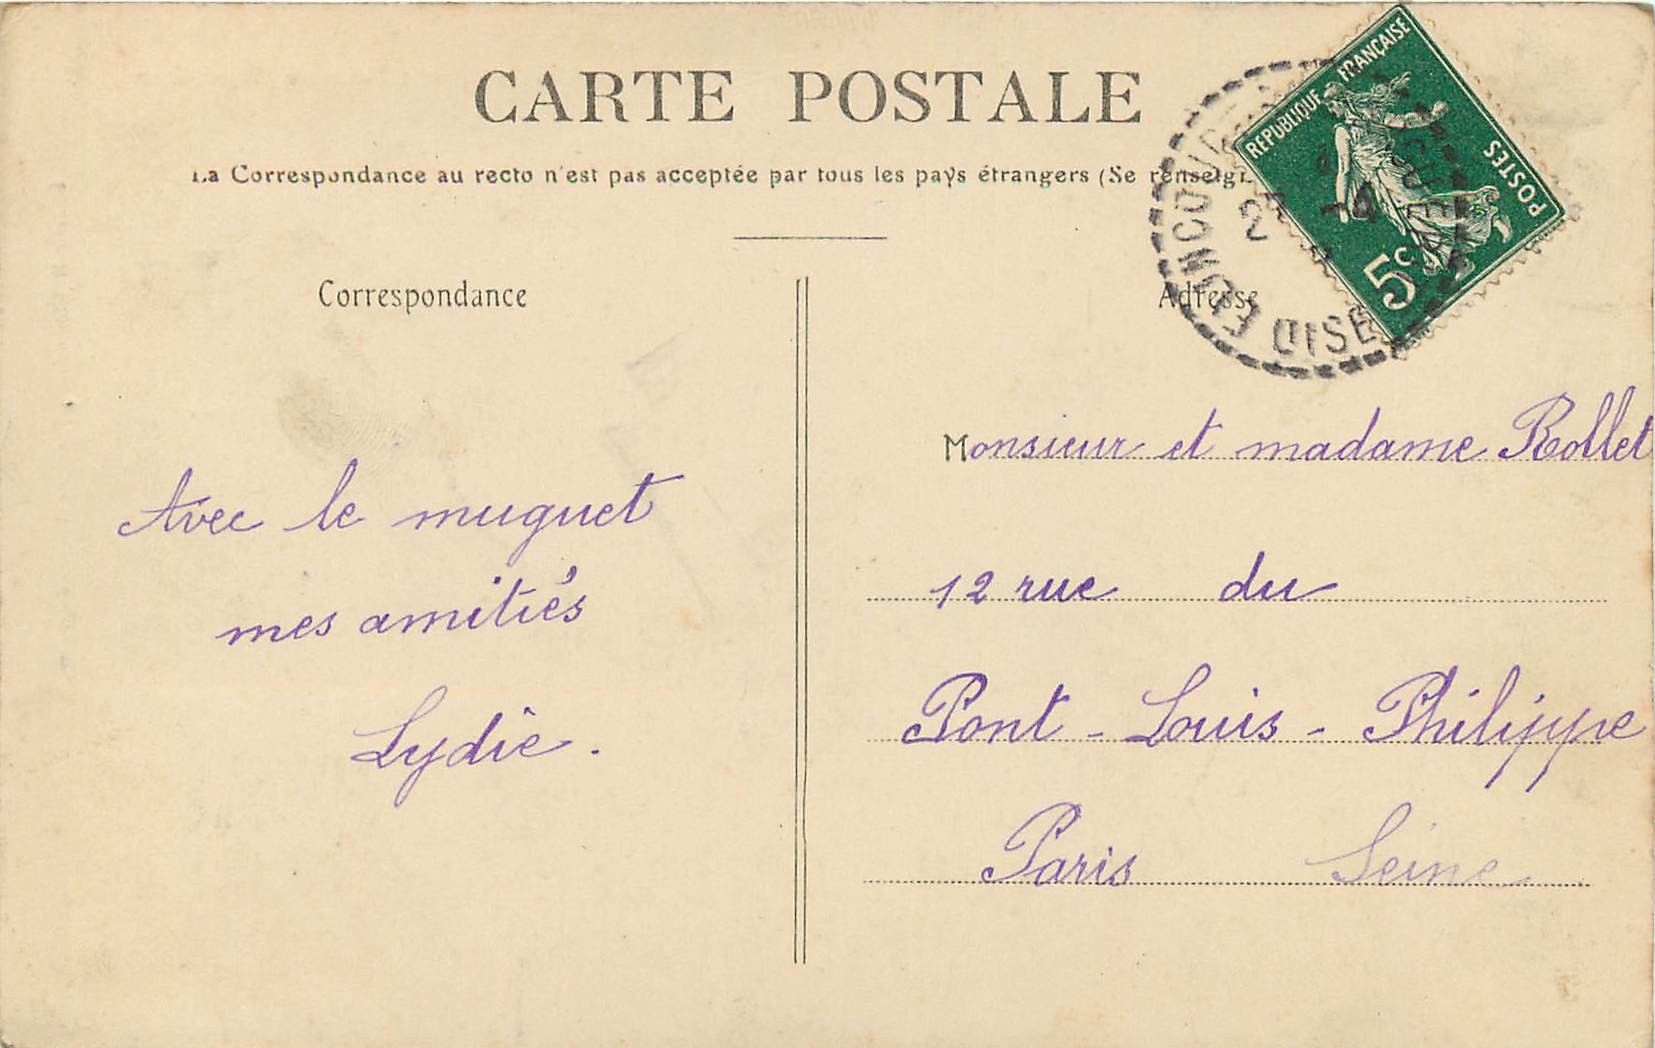 CARTE POSTALE
La Correspondance au recto n'est pas acceptée par tous les pays étrangers (Se renseig
Correspondance
Adresse
REPUBLIQUE FRANÇAISE
POSTES
5c
OISE
Avec le muguet
mes amitiés
Lydie.
Monsieur et madame Rollet
12 rue du
Pont-Louis-Philippe
Paris Seine